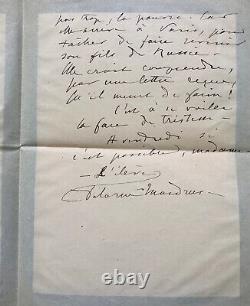 pas trop, la pauvre. Est
à Paris, pour
tâcher de faire revenir
son fils de Russie.
Elle croit comprendre,
par une lettre reçue,
qu'il meurt de faim !
C'est à se voiler
la face de tristesse
A vendredi si
c'est possible, madame
L'élève
Delarue Mardrus
ebay